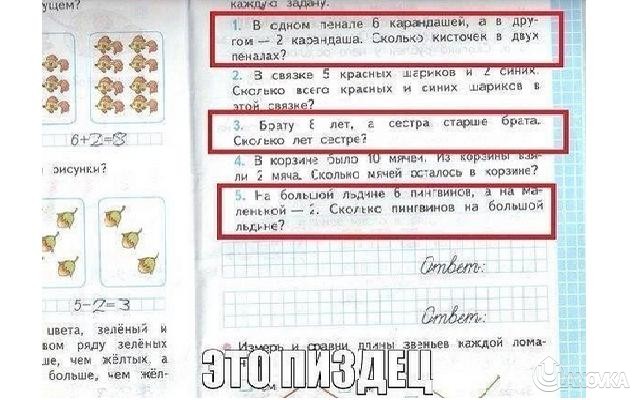 ущем?
6+2=8
рисунки?
5-2=3
цвета, зелёный и
вом ряду зелёных
ше, чем жёлтых, а
больше, чем жёл-
каждую задачу.
1. В одном пенале 6 карандашей, а в дру-
гом — 2 карандаша. Сколько кисточек в двух
пеналах?
2. В связке 5 красных шариков и 2 синих.
Сколько всего красных и синих шариков в
этой связке?
3. Брату 8 лет, а сестра старше брата.
Сколько лет сестре?
4. В корзине было 10 мячей. Из корзины взя-
ли 2 мяча. Сколько мячей осталось в корзине?
5. На большой льдине 6 пингвинов, а на ма-
ленькой — 2. Сколько пингвинов на большой
льдине?
Ответ:
Ответ:
Измерь и сравни длины звеньев каждой лома-
ЭТО ПИЗДЕЦ